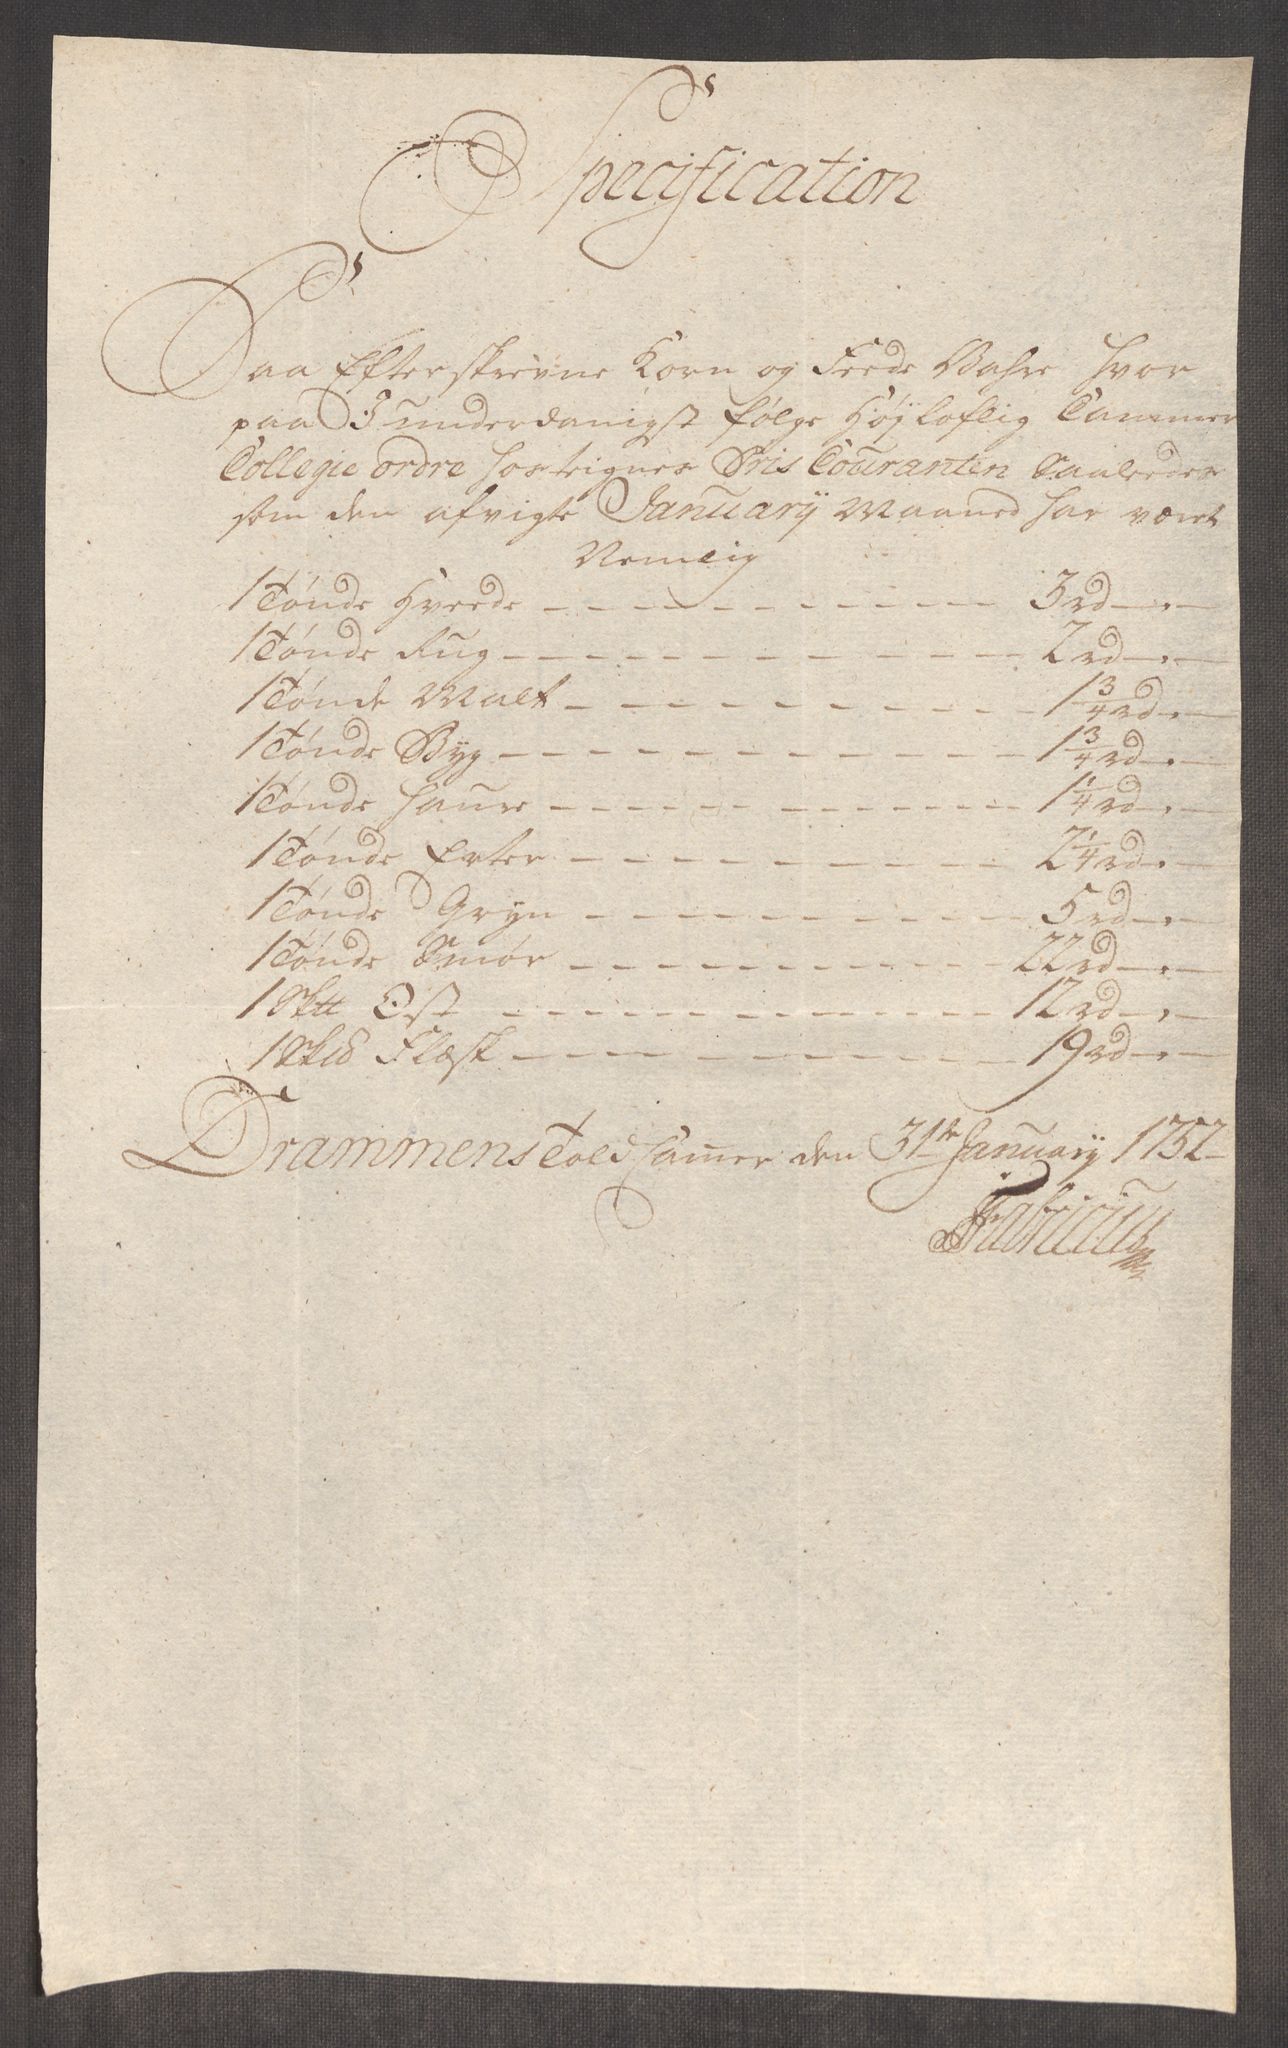 Specification
Paa Efterskrevne Korn og Feede Vahre hvor
paa I underdanigst følge Høÿloflig Cammer
Collegie ordre hostegnes Pris Couranten Saaleedes
som den afvigte Januarÿ Maaned har været
Nemlig
1 Tønde Hveede - - - 3 rd - . -
1 Tønde Rug - - - 2 rd - . -
1 Tønde Malt - - - 1 3/4 rd - . -
1 Tønde Byg - - - 1 3/4 rd - . -
1 Tønde Haure - - - 1 1/4 rd - . -
1 Tønde Erter - - - 2 1/4 rd - . -
1 Tønde Gryn - - - 5 rd - . -
1 Tønde Smør - - - 22 rd - . -
1 Sk℔ Ost - - - 12 rd - . -
1 Sk℔ Flæsk - - - 19 rd - . -
Drammens Told Camer den 31te Januarÿ 1752
Fabricius